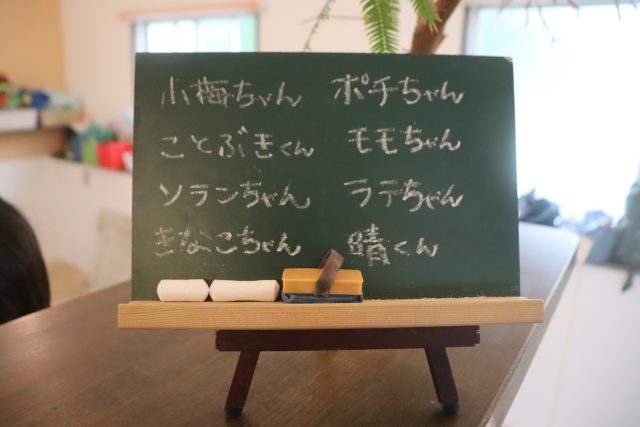 小梅ちゃん ポチちゃん
ことぶきくん モモちゃん
ソランちゃん ラテちゃん
きなこちゃん 晴くん